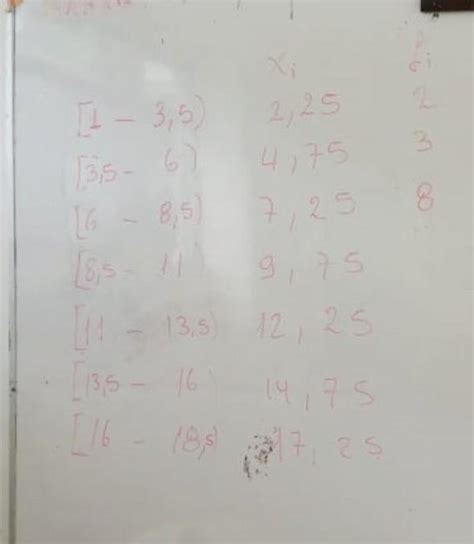 xi fi
[1 - 3,5) 2,25 2
[3,5 - 6) 4,75 3
[6 - 8,5) 7,25 8
[8,5 - 11 9,75
[11 - 13,5) 12,25
[13,5 - 16) 14,75
[16 - 18,5) 17,25